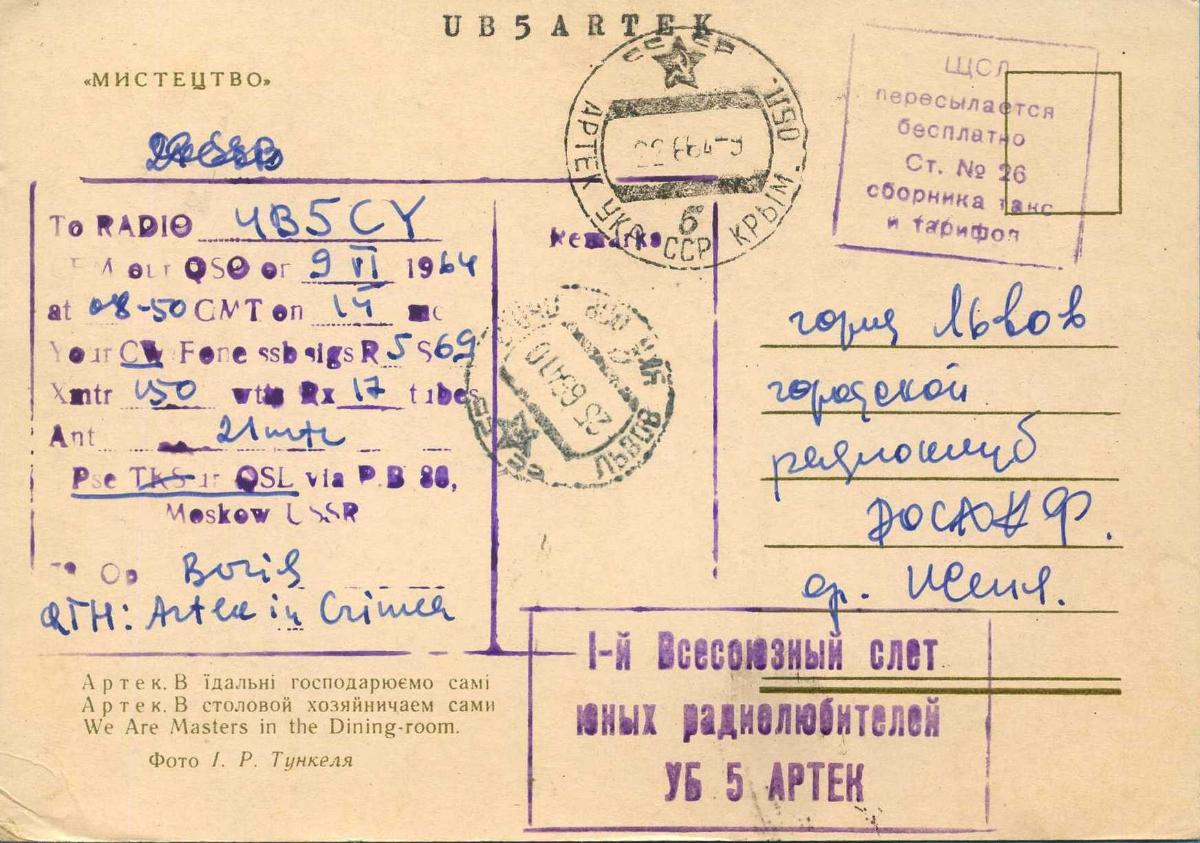 UB5ARTEK
«МИСТЕЦТВО»
СССР
АРТЕК УКР. ССР КРЫМ. ОБЛ.
22 6 64-9
б
ЩСЛ
пересылается
бесплатно
Ст. № 26
сборника такс
и тарифов
To RADIO UB5CY
CFM our QSO or 9 VI 1964
at 08-50 GMT on 14 mc
Your CW Fone ssb sigs R 5 S 69
Xmtr 150 wtts Rx 17 tubes
Ant 21 mtr
Pse TKS ur QSL via P.B 88,
Moskow USSR
Op Boris
QTH: Artek in Crimea
Remarks
СССР
ЛЬВОВ УКР ССР
25 6 64 10
город Львов
городской
радиоклуб
ДОСААФ.
ор. Женя.
I-й Всесоюзный слет
юных радиолюбителей
УБ 5 АРТЕК
Артек. В їдальні господарюємо самі
Артек. В столовой хозяйничаем сами
We Are Masters in the Dining-room.
Фото І. Р. Тункеля